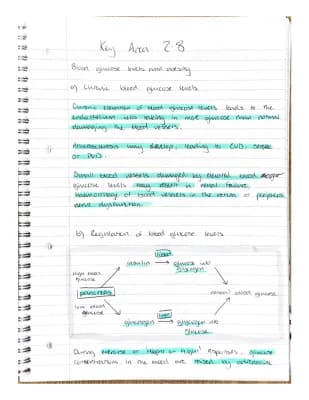 Key Area 2.8
Blood glucose levels and obesity
a) Chronic blood glucose levels
Chronic elevation of blood glucose levels leads to the
endothelium cells taking in more glucose than normal
damaging the blood vessels.
Atherosclerosis may develop, leading to CVD, stroke
or PVD.
Small blood vessels damaged by elevated blood
glucose levels may result in renal failure,
haemorrhage of blood vessels in the retina or peripheral
nerve dysfunction.
b) Regulation of blood glucose levels
liver
insulin → glucose into
glycogen
high blood
glucose
pancreas
normal blood glucose
low blood
glucose
liver
glucagon → glycogen into
glucose
During exercise or 'fight or flight' responses, glucose
concentrations in the blood are raised by adrenaline